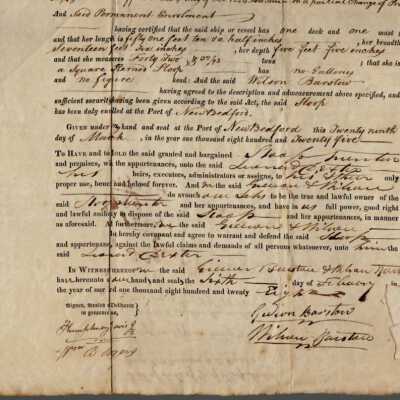 And Said Permanent Enrolment
having certified that the said ship or vessel has one deck and one mast
and that her length is fifty one feet ten & a half inches her breadth
Seventeen feet two inches, her depth five feet five inches
and that she measures Forty Two tons; that she is
a Square Sterned Sloop has no Galleries
and no figure head: And the said Wilson Barstow
having agreed to the description and admeasurement above specified, and
sufficient security having been given according to the said Act, the said Sloop
has been duly enrolled at the Port of New Bedford.
GIVEN under my hand and seal at the Port of New Bedford this Twenty ninth
day of March, in the year one thousand eight hundred and Twenty five
TO HAVE AND TO HOLD the said granted and bargained Sloop
and premises, with the appurtenances, unto the said
his heirs, executors, administrators or assigns, to only
proper use, benefit and behoof forever. And we the said Gideon & Wilson
do avouch ourselves to be the true and lawful owners of the
said Sloop and her appurtenances, and have in us full power, good right
and lawful authority to dispose of the said Sloop and her appurtenances, in manner
as aforesaid. And furthermore, we the said Gideon & Wilson
do hereby covenant and agree to warrant and defend the said Sloop
and appurtenances, against the lawful claims and demands of all persons whatsoever, unto him the
said
IN WITNESS whereof, we the said Gideon Barstow & Wilson Barstow
have hereunto set our hands and seals, the Sixth day of February in
the year of our Lord one thousand eight hundred and twenty Eight
Signed, Sealed & Delivered
in presence of
Gideon Barstow
Wilson Barstow